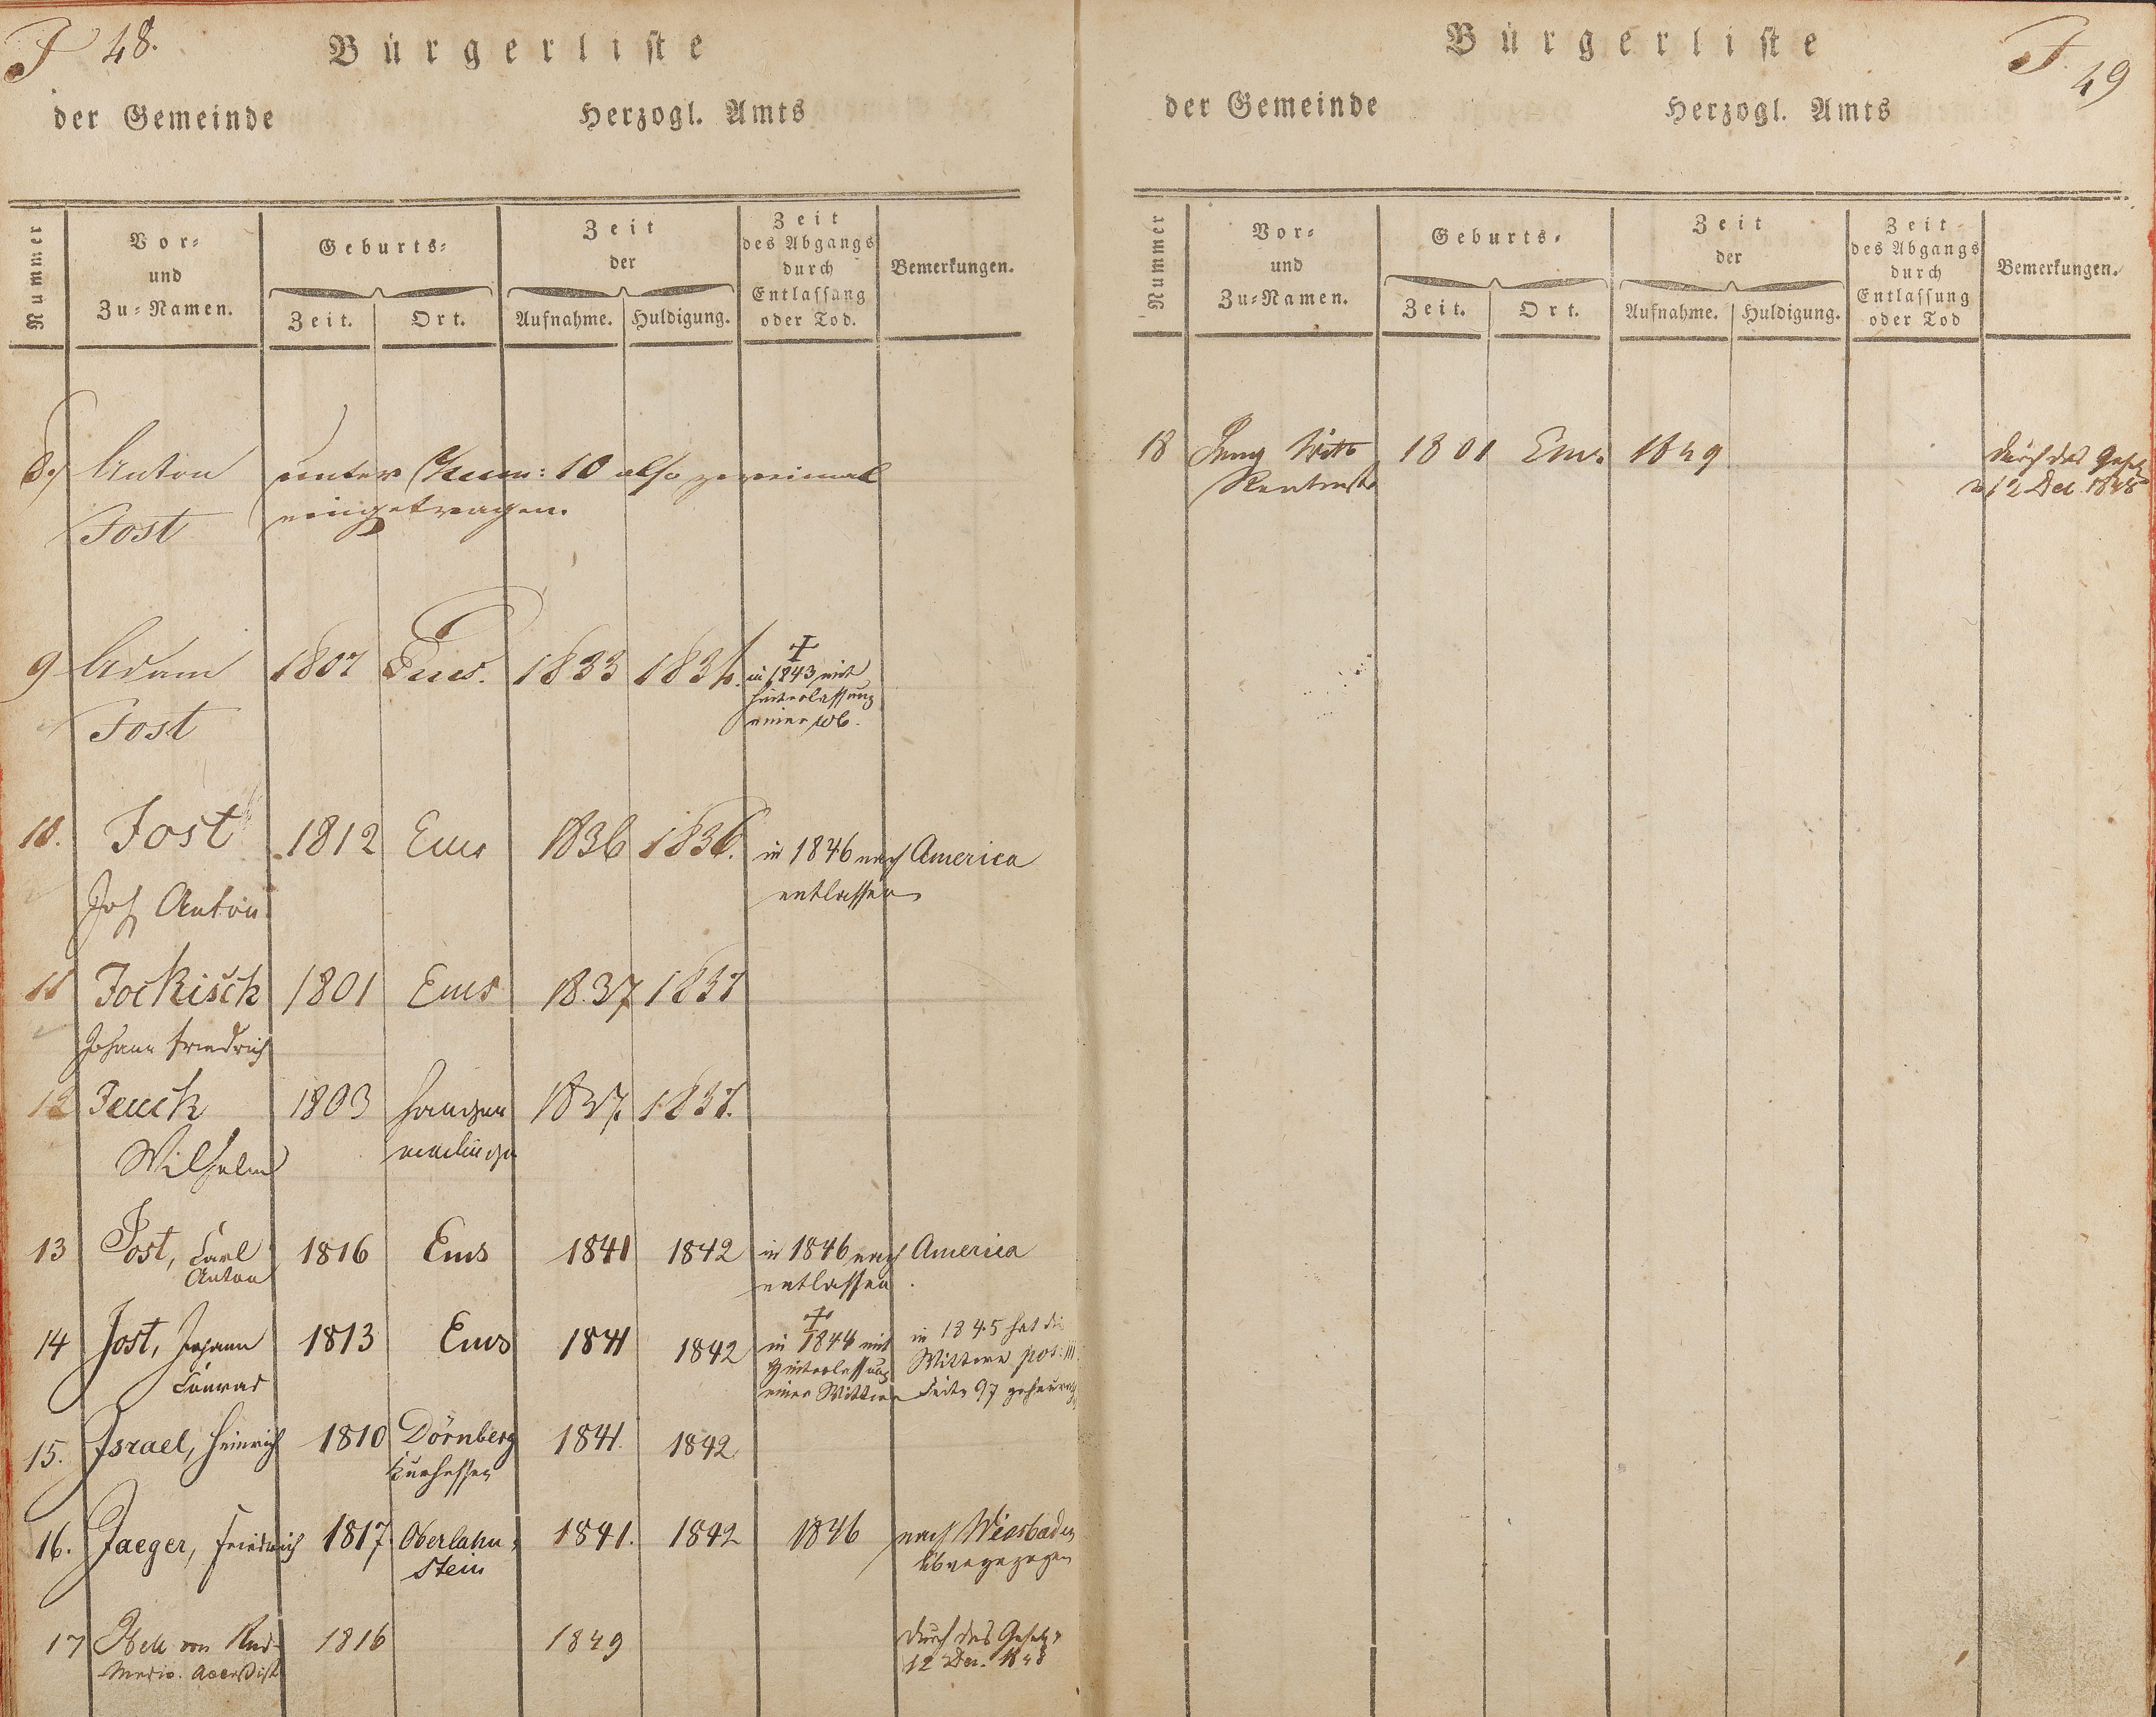 J 48.
Bürgerliste
der Gemeinde Herzogl. Amts
Nummer
Vor-
und
Zu-Namen.
Geburts-
Zeit. Ort.
Zeit
der
Aufnahme. Huldigung.
Zeit
des Abgangs
durch
Entlassung
oder Tod.
Bemerkungen.
8. Anton unter Num: 10 also zweimal
Jost eingetragen.
9 Adam 1807 Ems. 1833 1834.
Jost
in 1843 mit
Hinterlassung
einer Wb.
10. Jost 1812 Ems 1836 1836. in 1846 nach America
Joh Anton entlassen
11 Jockisch 1801 Ems 1837 1837
Johann Friedrich
12 Jeuck 1803 1837. 1837.
Wilhelm
13 Jost, Carl 1816 Ems 1841 1842 in 1846 nach America
Anton entlassen.
14 Jost, Johann 1813 Ems 1841 1842
Conrad
in 1844 mit
Hinterlassung
einer Wittwe
in 1845 hat die
Wittwe pos: III
Seite 97 geheurath
15. Israel, Heinrich 1810 Dörnberg 1841. 1842
Kurhessen
16. Jaeger, Friedrich 1817 Oberlahn- 1841. 1842 1846 nach Wiesbaden
stein übergezogen
17 von 1816 1849 durch das Gesetz v
Medic. Accessist 12 Dec. 1848
Bürgerliste
J. 49
der Gemeinde Herzogl. Amts
Nummer
Vor-
und
Zu-Namen.
Geburts-
Zeit. Ort.
Zeit
der
Aufnahme. Huldigung.
Zeit
des Abgangs
durch
Entlassung
oder Tod
Bemerkungen.
18 1801 Ems. 1849 durch das Gesetz
v 12 Dec 1848